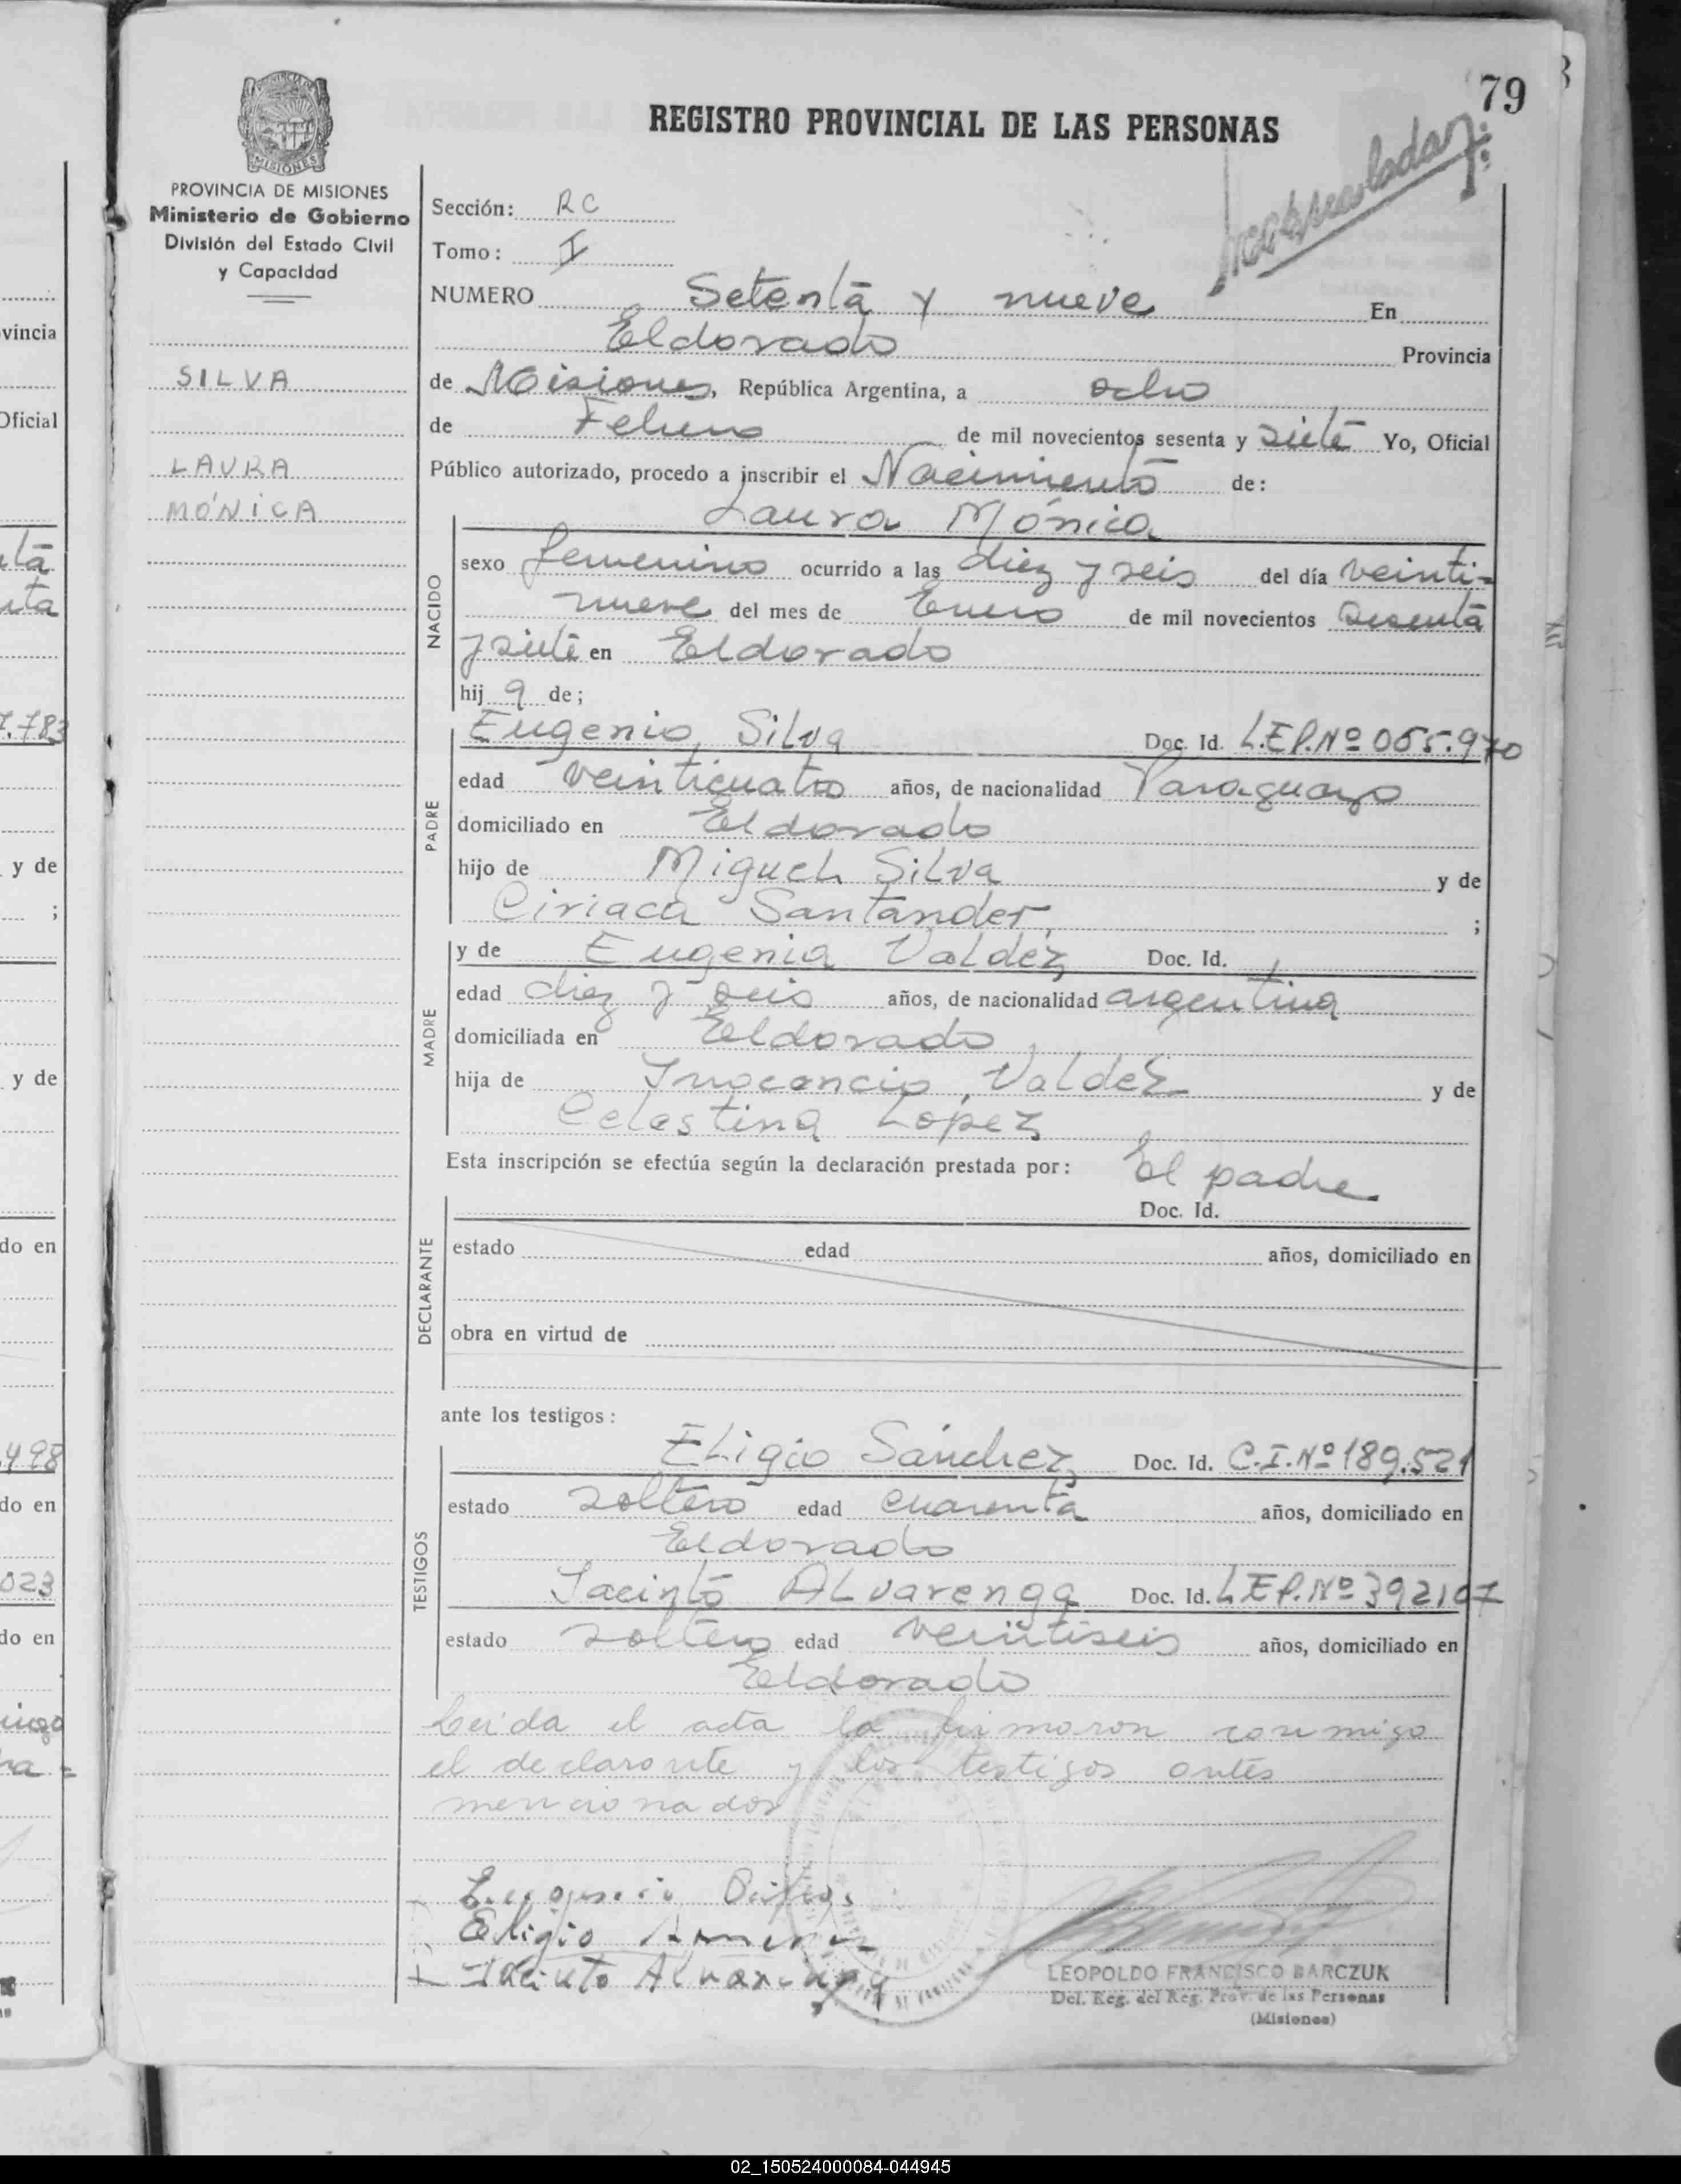 79
REGISTRO PROVINCIAL DE LAS PERSONAS
MISIONES
PROVINCIA DE MISIONES
Ministerio de Gobierno
División del Estado Civil
y Capacidad
SILVA
LAURA
MÓNICA
Sección: RC
Tomo: I
NUMERO Setenta y nueve En
Eldorado Provincia
de Misiones, República Argentina, a ocho
de Febrero de mil novecientos sesenta y siete Yo, Oficial
Público autorizado, procedo a inscribir el Nacimiento de:
Laura Mónica
NACIDO
sexo femenino ocurrido a las diez y seis del día veinti-
nueve del mes de Enero de mil novecientos sesenta
y siete en Eldorado
hij a de;
PADRE
Eugenio Silva Doc. Id. L.E.P.Nº 055.970
edad veinticuatro años, de nacionalidad Paraguayo
domiciliado en Eldorado
hijo de Miguel Silva y de
Ciriaca Santander ;
MADRE
y de Eugenia Valdéz Doc. Id.
edad diez y seis años, de nacionalidad argentina
domiciliada en Eldorado
hija de Inocencio Valdéz y de
Celestina Lopez
Esta inscripción se efectúa según la declaración prestada por: El padre
DECLARANTE
Doc. Id.
estado edad años, domiciliado en
obra en virtud de
ante los testigos:
TESTIGOS
Eligio Sánchez Doc. Id. C.I.Nº 189.521
estado soltero edad cuarenta años, domiciliado en
Eldorado
Jacinto Alvarenga Doc. Id. L.E.P.Nº 392107
estado soltero edad veintiseis años, domiciliado en
Eldorado
Leida el acta la firmaron conmigo
el declarante y los testigos antes
mencionados
Eligio
Jacinto Alvarenga
LEOPOLDO FRANCISCO BARCZUK
Del. Reg. del Reg. Prov. de las Personas
(Misiones)
vincia
Oficial
7.783
y de
;
y de
do en
498
do en
023
do en
02_150524000084-044945